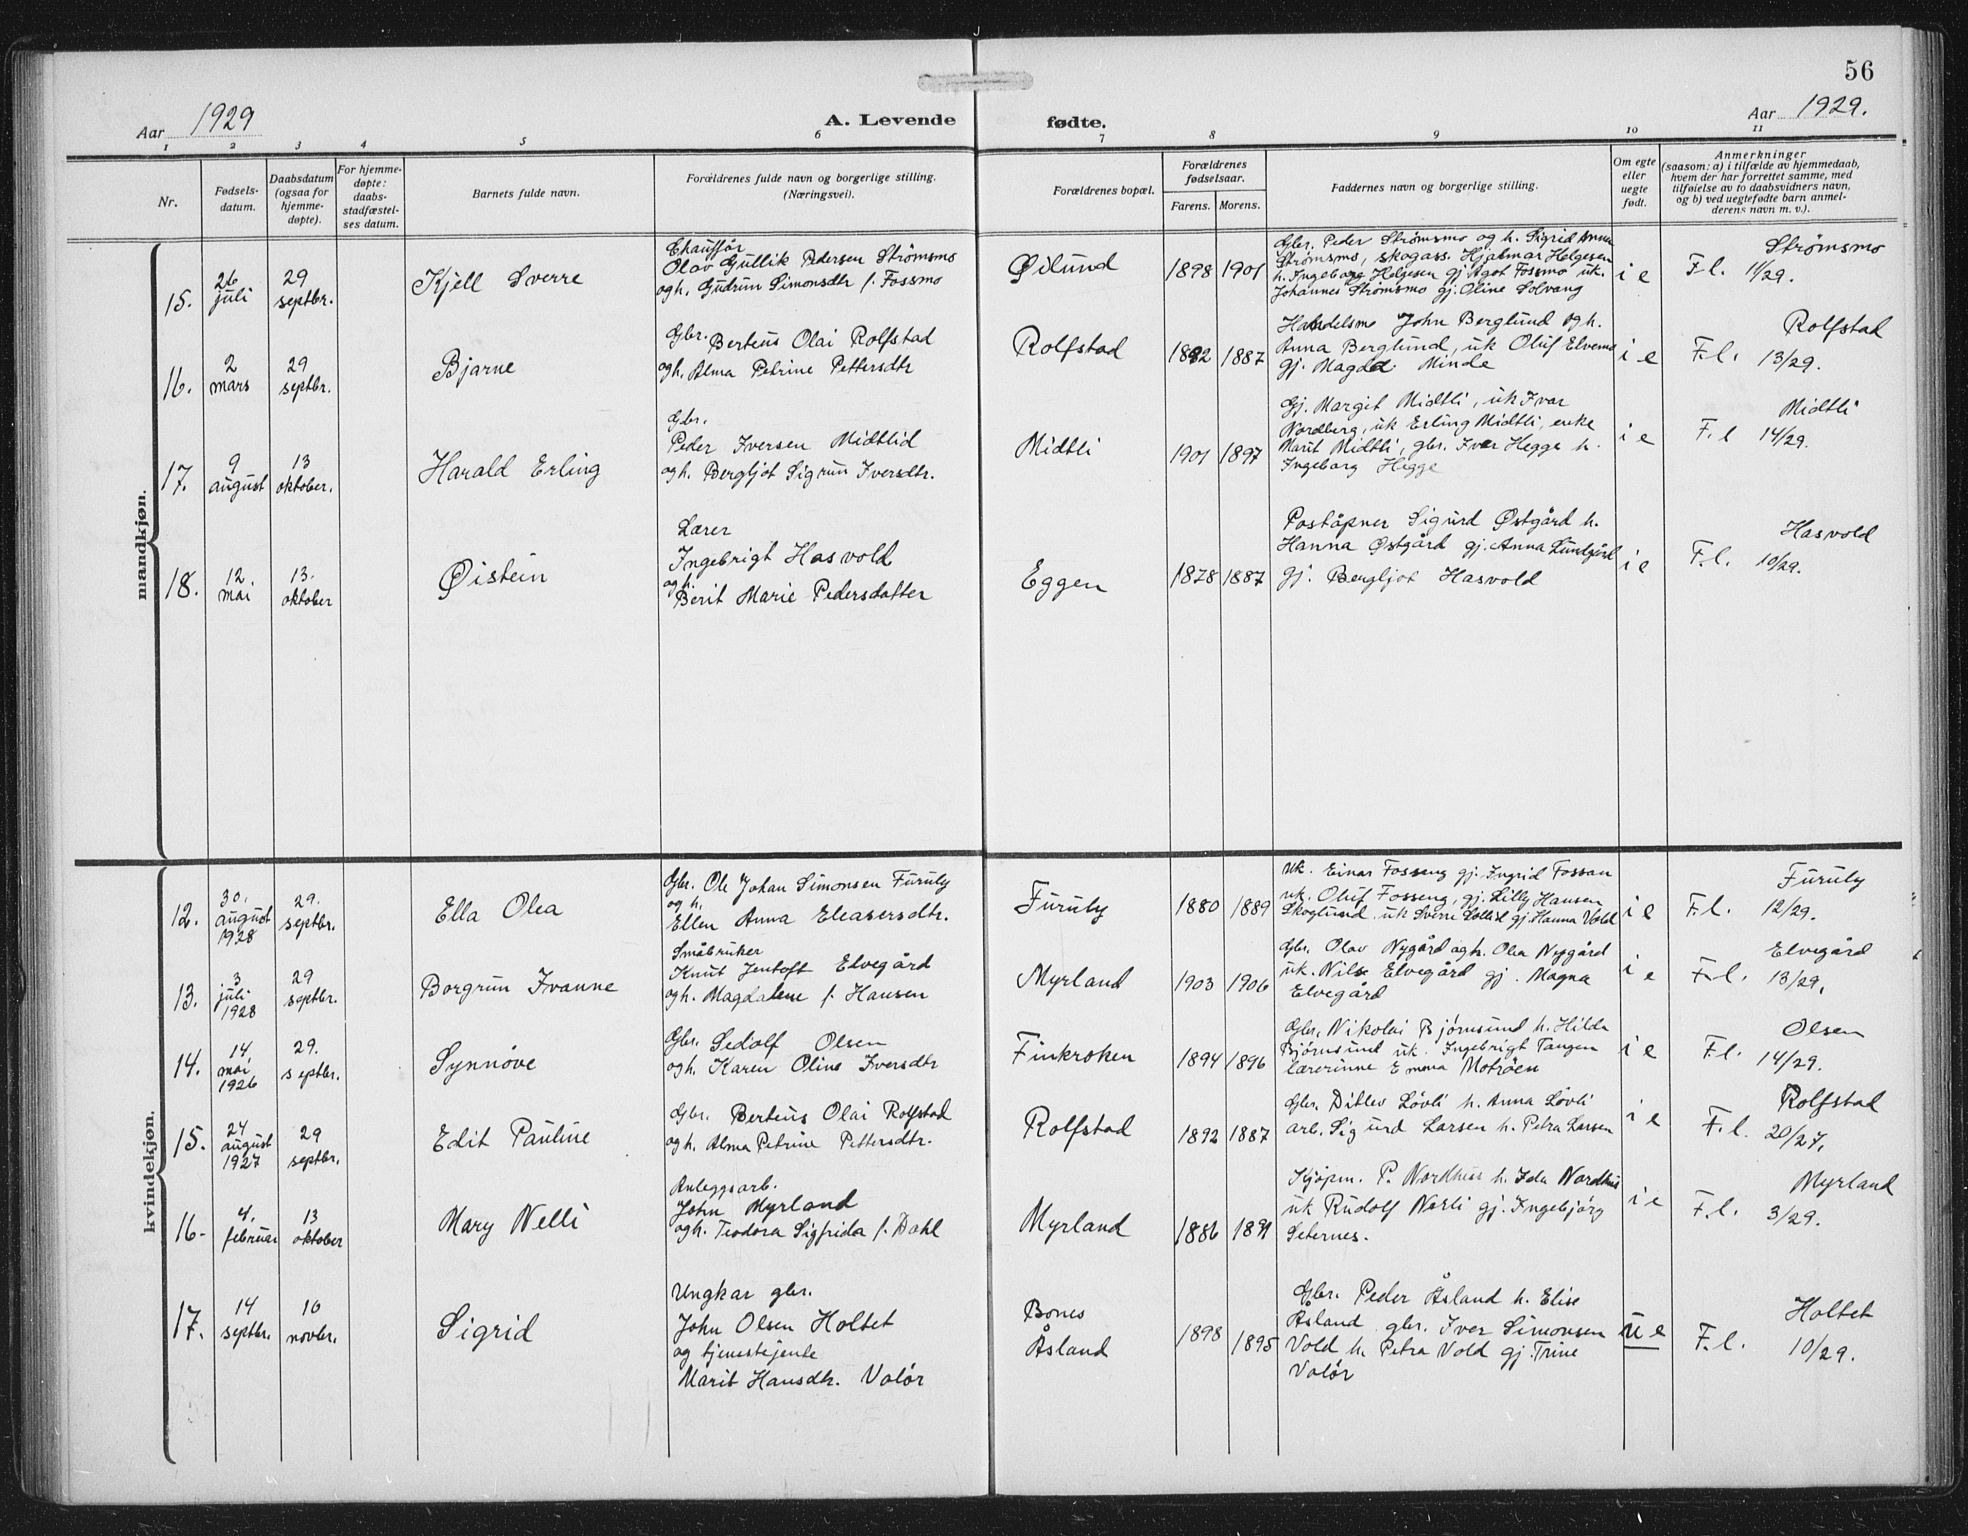 56
Aar 1929
A. Levende fødte.
Aar 1929.
1 2 3 4 5 6 7 8 9 10 11
Nr.
Fødsels-
datum.
Daabsdatum
(ogsaa for
hjemme-
døpte).
For hjemme-
døpte:
daabs-
stadfæstel-
ses datum.
Barnets fulde navn.
Forældrenes fulde navn og borgerlige stilling.
(Næringsvei).
Forældrenes bopæl.
Forældrenes
fødselsaar.
Farens. Morens.
Faddernes navn og borgerlige stilling.
Om egte
eller
uegte
født.
Anmerkninger
(saasom: a) i tilfælde av hjemmedaab,
hvem der har forrettet samme, med
tilføielse av to daabsvidners navn,
og b) ved uegtefødte barn anmel-
derens navn m. v.).
mandkjøn.
15.
26
juli
29
septbr.
Kjell Sverre
Chauffør
Olav Gullik Pedersen Strømsmo
og h. Gudrun Simonsdtr f. Fossmo
Øilund
1898 1901
Gbr. Peder Strømsmo og h. Sigrid Anna
Strømsmo, skogass. Hjalmar Helgesen
h. Ingeborg Helgesen gj. Agot Fossmo uk.
Johannes Strømsmo gj. Oline Solvang
i e
F.l. Strømsmo
11/29.
16.
2
mars
29
septbr.
Bjarne
Gbr. Berteus Olai Rolfstad
og h. Alma Petrine Pettersdtr
Rolfstad
1892 1887
Handelsm John Berglund og h.
Anna Berglund, uk Oluf Elvemo
gj. Magda Minde
i e
F.l. Rolfstad
13/29.
17.
9
august
13
oktober.
Harald Erling
Gbr.
Peder Iversen Midtlid
og h. Bergljot Sigrun Iversdtr.
Midtli
1901 1897
Gj. Margit Midtli, uk Ivar
Nordberg, uk Erling Midtli, enke
Marit Midtli, gbr. Iver Hegge h.
Ingeborg Hegge
i e
F.l Midtli
14/29.
18.
12
mai
13.
oktober
Øistein
Lærer
Ingebrigt Hasvold
og h.
Berit Marie Pedersdatter
Eggen
1878 1887
Poståpner Sigurd Østgård h.
Hanna Østgård gj. Anna Lundgård
gj. Bergljot Hasvold
i e
F.l. Hasvold
10/29.
kvindekjøn.
12.
30.
august
1928
29.
septbr.
Ella Olea
Gbr. Ole Johan Simonsen Furuly
og h.
Ellen Anna Eleasersdtr.
Furuly
1880 1889
uk. Einar Fosseng gj. Ingrid Fossan
uk. Oluf Fosseng, gj. Lilly Hansen
Skoglund, uk Sverre gj. Hanna Vold
i e
F.l. Furuly
12/29.
13.
3
juli
1928
29
septbr.
Borgrun Ivanne
Småbruker
Knut Jentoft Elvegård
og h. Magdalene f. Hansen
Myrland
1903 1906
Gbr. Olav Nygård og h. Olea Nygård
uk. Nils Elvegård gj. Magna
Elvegård
i e
F.l. Elvegård
13/29.
14.
14
mai
1926
29.
septbr.
Synnøve
Gbr. Sedolf Olsen
og h. Karen Oline Iversdtr
Finkroken
1894 1896
Gbr. Nikolai Bjørnsund h. Hilda
Bjørnsund uk. Ingebrigt Tangen
lærerinne Emma Motrøen
i e
F.l. Olsen
14/29.
15.
24
august
1927
29
septbr.
Edit Pauline
Gbr. Berteus Olai Rolfstad
og h. Alma Petrine Pettersdtr.
Rolfstad
1892 1887
Gbr. Ditlev Løvli h. Anna Løvli
arb. Sigurd Larsen h. Petra Larsen
i e
F.l. Rolfstad
20/27.
16-
4.
februar
13
oktober
Mary Nelli
Anleggsarb.
John Myrland
og h. Teodora Sigfrida f. Dahl
Myrland
1886 1891
Kjøpm. P. Nordhus h. Ida Nordhus
uk Rudolf Norli gj. Ingebjørg
Seternes.
i e
F.l. Myrland
3/29.
17.
14
septbr.
10
novbr.
Sigrid
Ungkar gbr.
John Olsen Holtet
og tjenestejente
Marit Hansdtr. Valør
Bones
Åsland
1898 1895
Gbr. Peder Åsland h. Elise
Åsland gbr. Iver Simonsen
Vold h. Petra Vold gj. Trine
Valør
u e
F.l. Holtet
10/29.